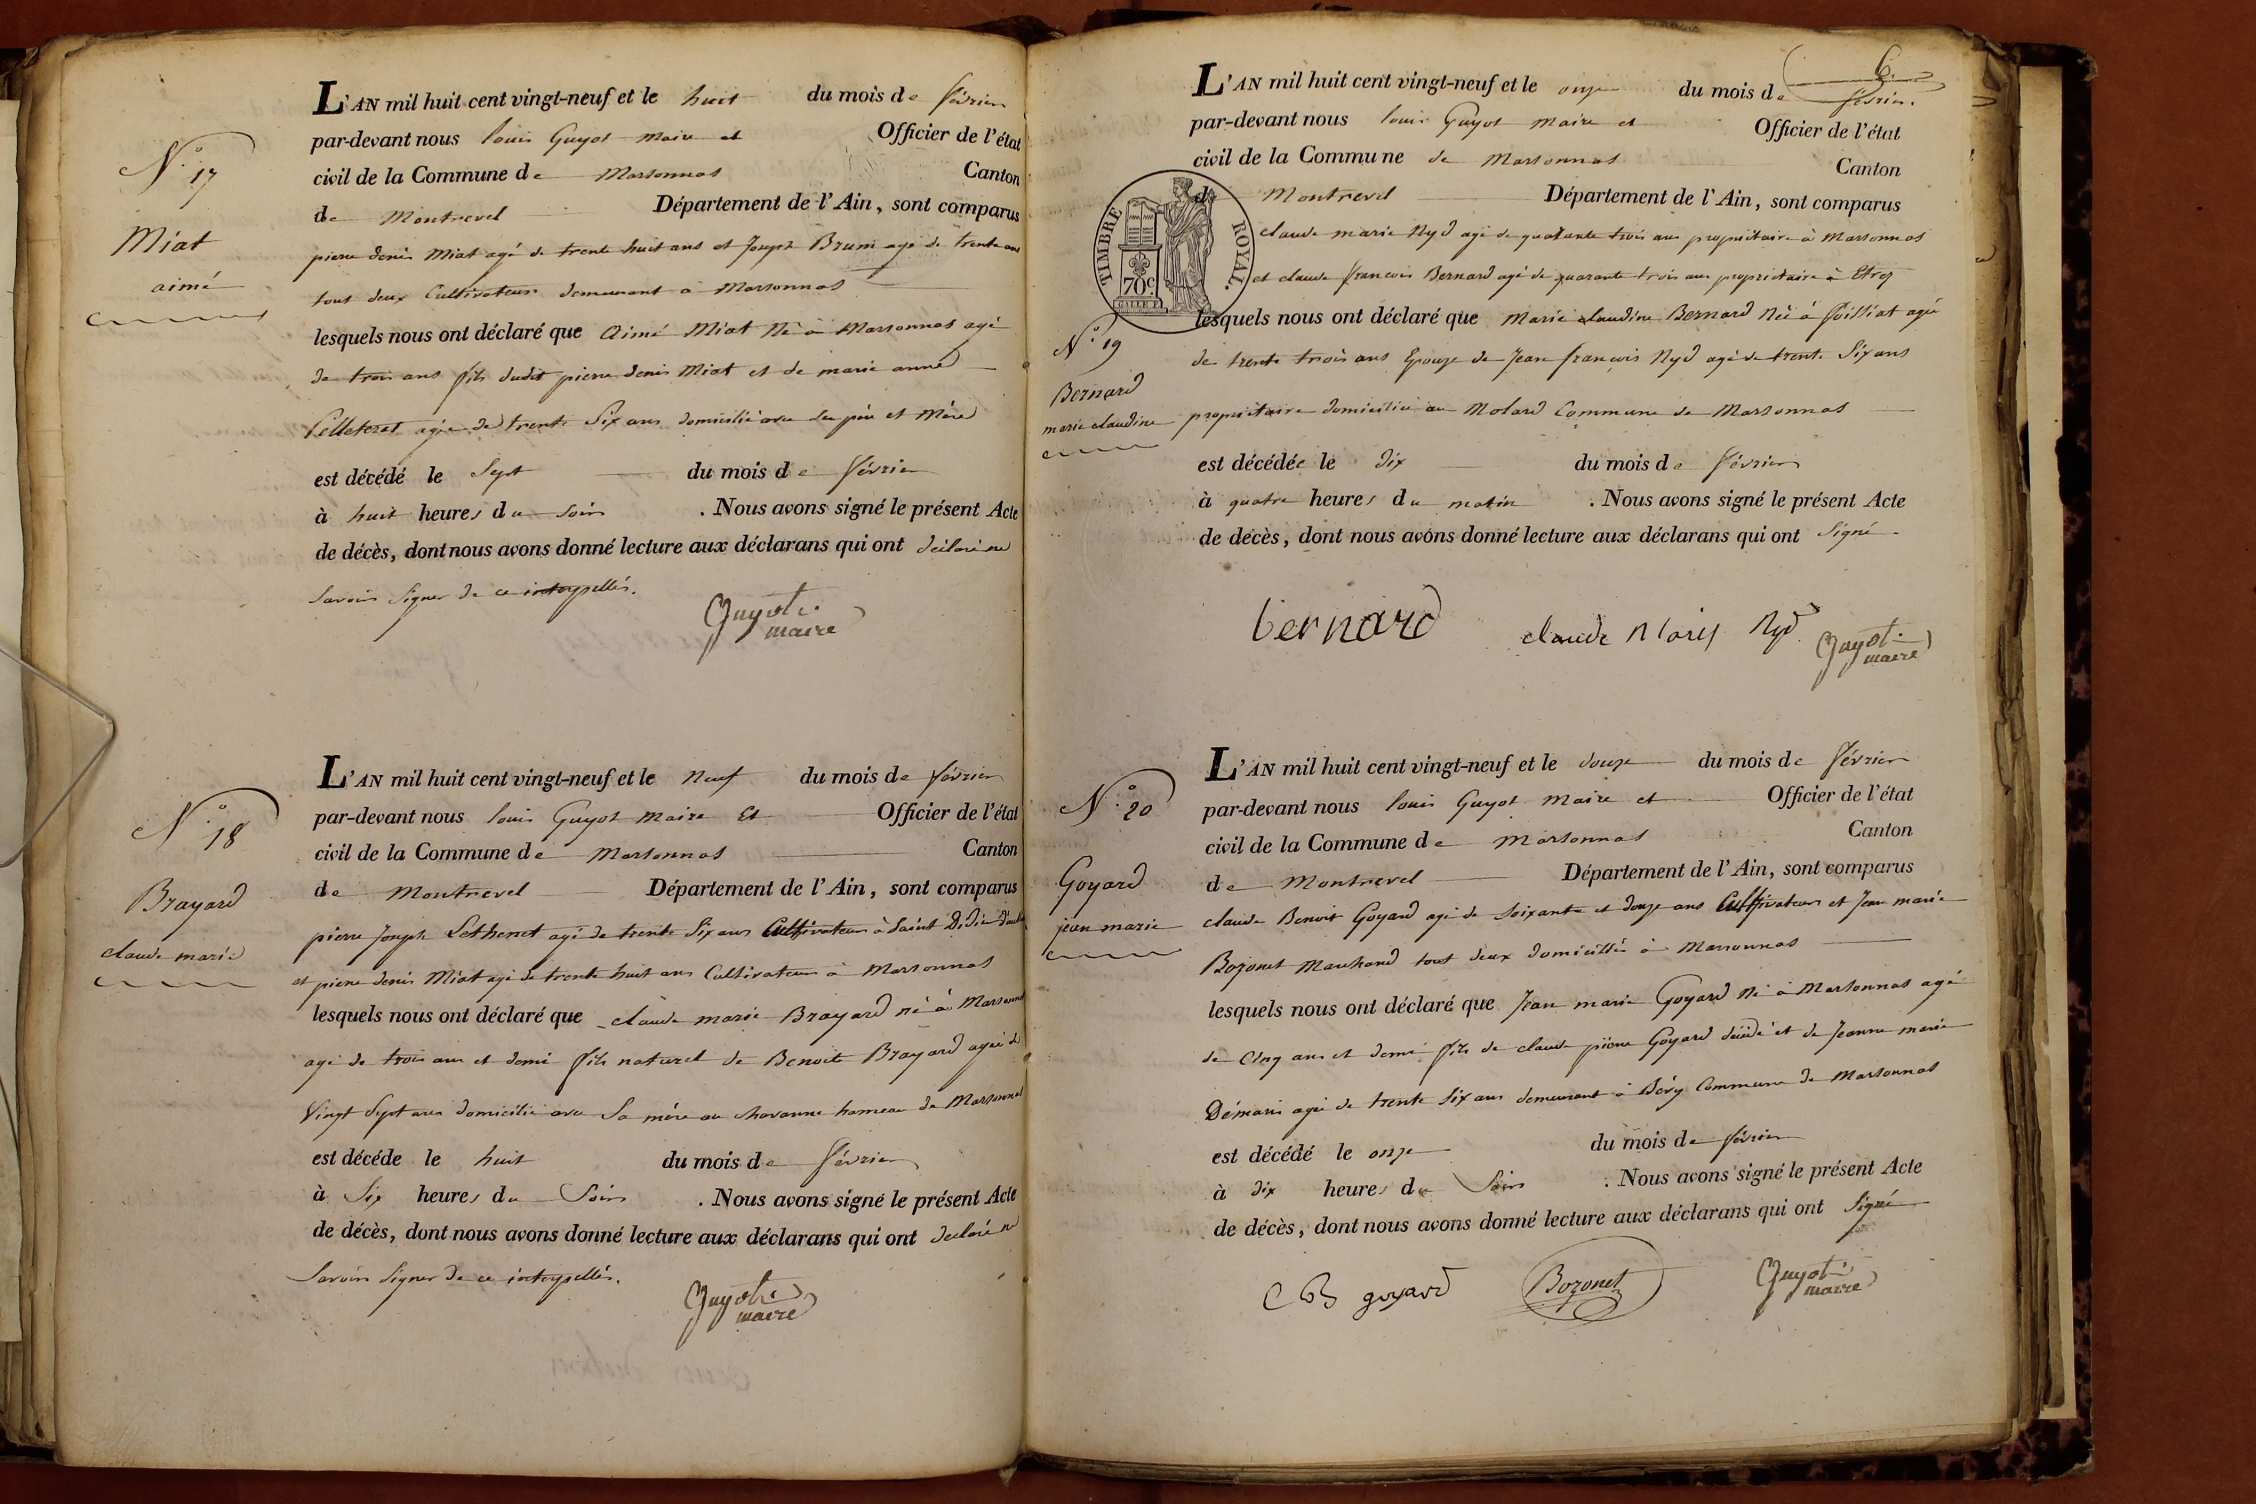 N.o 17
Miat
aimé
L'AN mil huit cent vingt-neuf et le huit du mois de février
par-devant nous louis Guyot maire et Officier de l'état
civil de la Commune de Marsonnas Canton
de Montrevel Département de l'Ain, sont comparus
pierre denis Miat agé de trente huit ans et Joseph Brun agé de trente ans
tout deux Cultivateurs demeurant à Marsonnas
lesquels nous ont déclaré que Aimé Miat Né à Marsonnas agé
de trois ans fils dudit pierre denis Miat et de marie anne
Pelleteret agée de trente Six ans domicilié avec ses père et Mère
est décédé le Sept du mois de février
à huit heures du Soir . Nous avons signé le présent Acte
de décès, dont nous avons donné lecture aux déclarans qui ont déclaré ne
Savoir Signer de ce interpellés.
Guyot
maire
N.o 18
Brayard
claude marie
L'AN mil huit cent vingt-neuf et le Neuf du mois de février
par-devant nous louis Guyot Maire Et Officier de l'état
civil de la Commune de Marsonnas Canton
de Montrevel Département de l'Ain, sont comparus
pierre Joseph Lethenet agé de trente Six ans Cultivateur à Saint Didier
et pierre denis Miat agé de trente huit ans Cultivateur à Marsonnas
lesquels nous ont déclaré que claude marie Brayard né à Marsonnas
agé de trois ans et demi fils naturel de Benoite Brayard agée de
Vingt Sept ans domicilié avec Sa mère au chavanne hameau de Marsonnas
est décéde le huit du mois de février
à Six heures du Soir . Nous avons signé le présent Acte
de décès, dont nous avons donné lecture aux déclarans qui ont déclaré ne
Savoir Signer de ce interpellés.
Guyot
maire
6.
L'AN mil huit cent vingt-neuf et le onze du mois de février.
par-devant nous louis Guyot maire et Officier de l'état
civil de la Commune de Marsonnas Canton
de Montrevel Département de l'Ain, sont comparus
TIMBRE ROYAL.
70c.
claude marie Nyd agé de quarante trois ans propriétaire à Marsonnas
et claude francois Bernard agé de quarante trois ans propriétaire à Etrez
N.o 19
Bernard
marie claudine
lesquels nous ont déclaré que Marie claudine Bernard Née à foissiat agée
de trente trois ans Epouze de Jean françois Nyd agé de trente Six ans
propriétaire domiciliée au Molard Commune de Marsonnas
est décédée le dix du mois de février
à quatre heures du matin . Nous avons signé le présent Acte
de décès, dont nous avons donné lecture aux déclarans qui ont Signé
bernard claude Marie Nyd
Guyot
maire
N.o 20
Goyard
jean marie
L'AN mil huit cent vingt-neuf et le douze du mois de février
par-devant nous louis Guyot Maire et Officier de l'état
civil de la Commune de Marsonnas Canton
de Montrevel Département de l'Ain, sont comparus
claude Benoit Goyard agé de Soixante et douze ans Cultivateur et Jean marie
Bozonet Marchand tout deux domiciliés à Marsonnas
lesquels nous ont déclaré que Jean marie Goyard Né à Marsonnas agé
de Cinq ans et demi fils de claude pierre Goyard décédé et de Jeanne marie
Démaris agée de trente Six ans demeurant à Bévy Commune de Marsonnas
est décédé le onze du mois de février
à dix heures du Soir . Nous avons signé le présent Acte
de décès, dont nous avons donné lecture aux déclarans qui ont Signé
C B goyard Bozonet
Guyot
maire